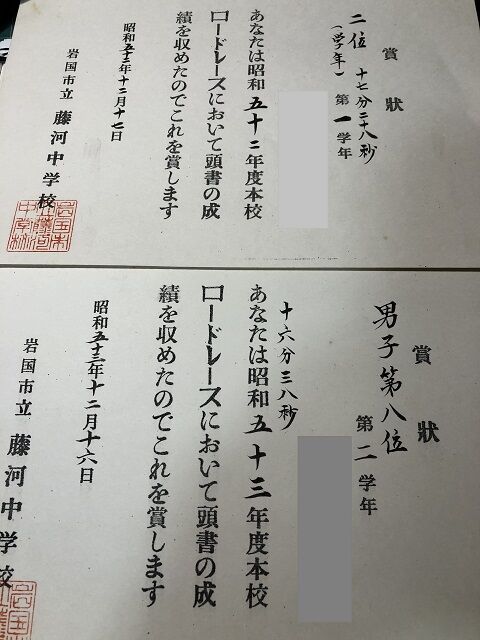 賞状
二位 十七分二十八秒
(学年)
第一学年
あなたは昭和五十二年度本校
ロードレースにおいて頭書の成
績を収めたのでこれを賞します
昭和五十二年十二月十七日
岩国市立 藤河中学校
賞状
男子第八位
第二学年
十六分三八秒
あなたは昭和五十三年度本校
ロードレースにおいて頭書の成
績を収めたのでこれを賞します
昭和五十三年十二月十六日
岩国市立 藤河中学校